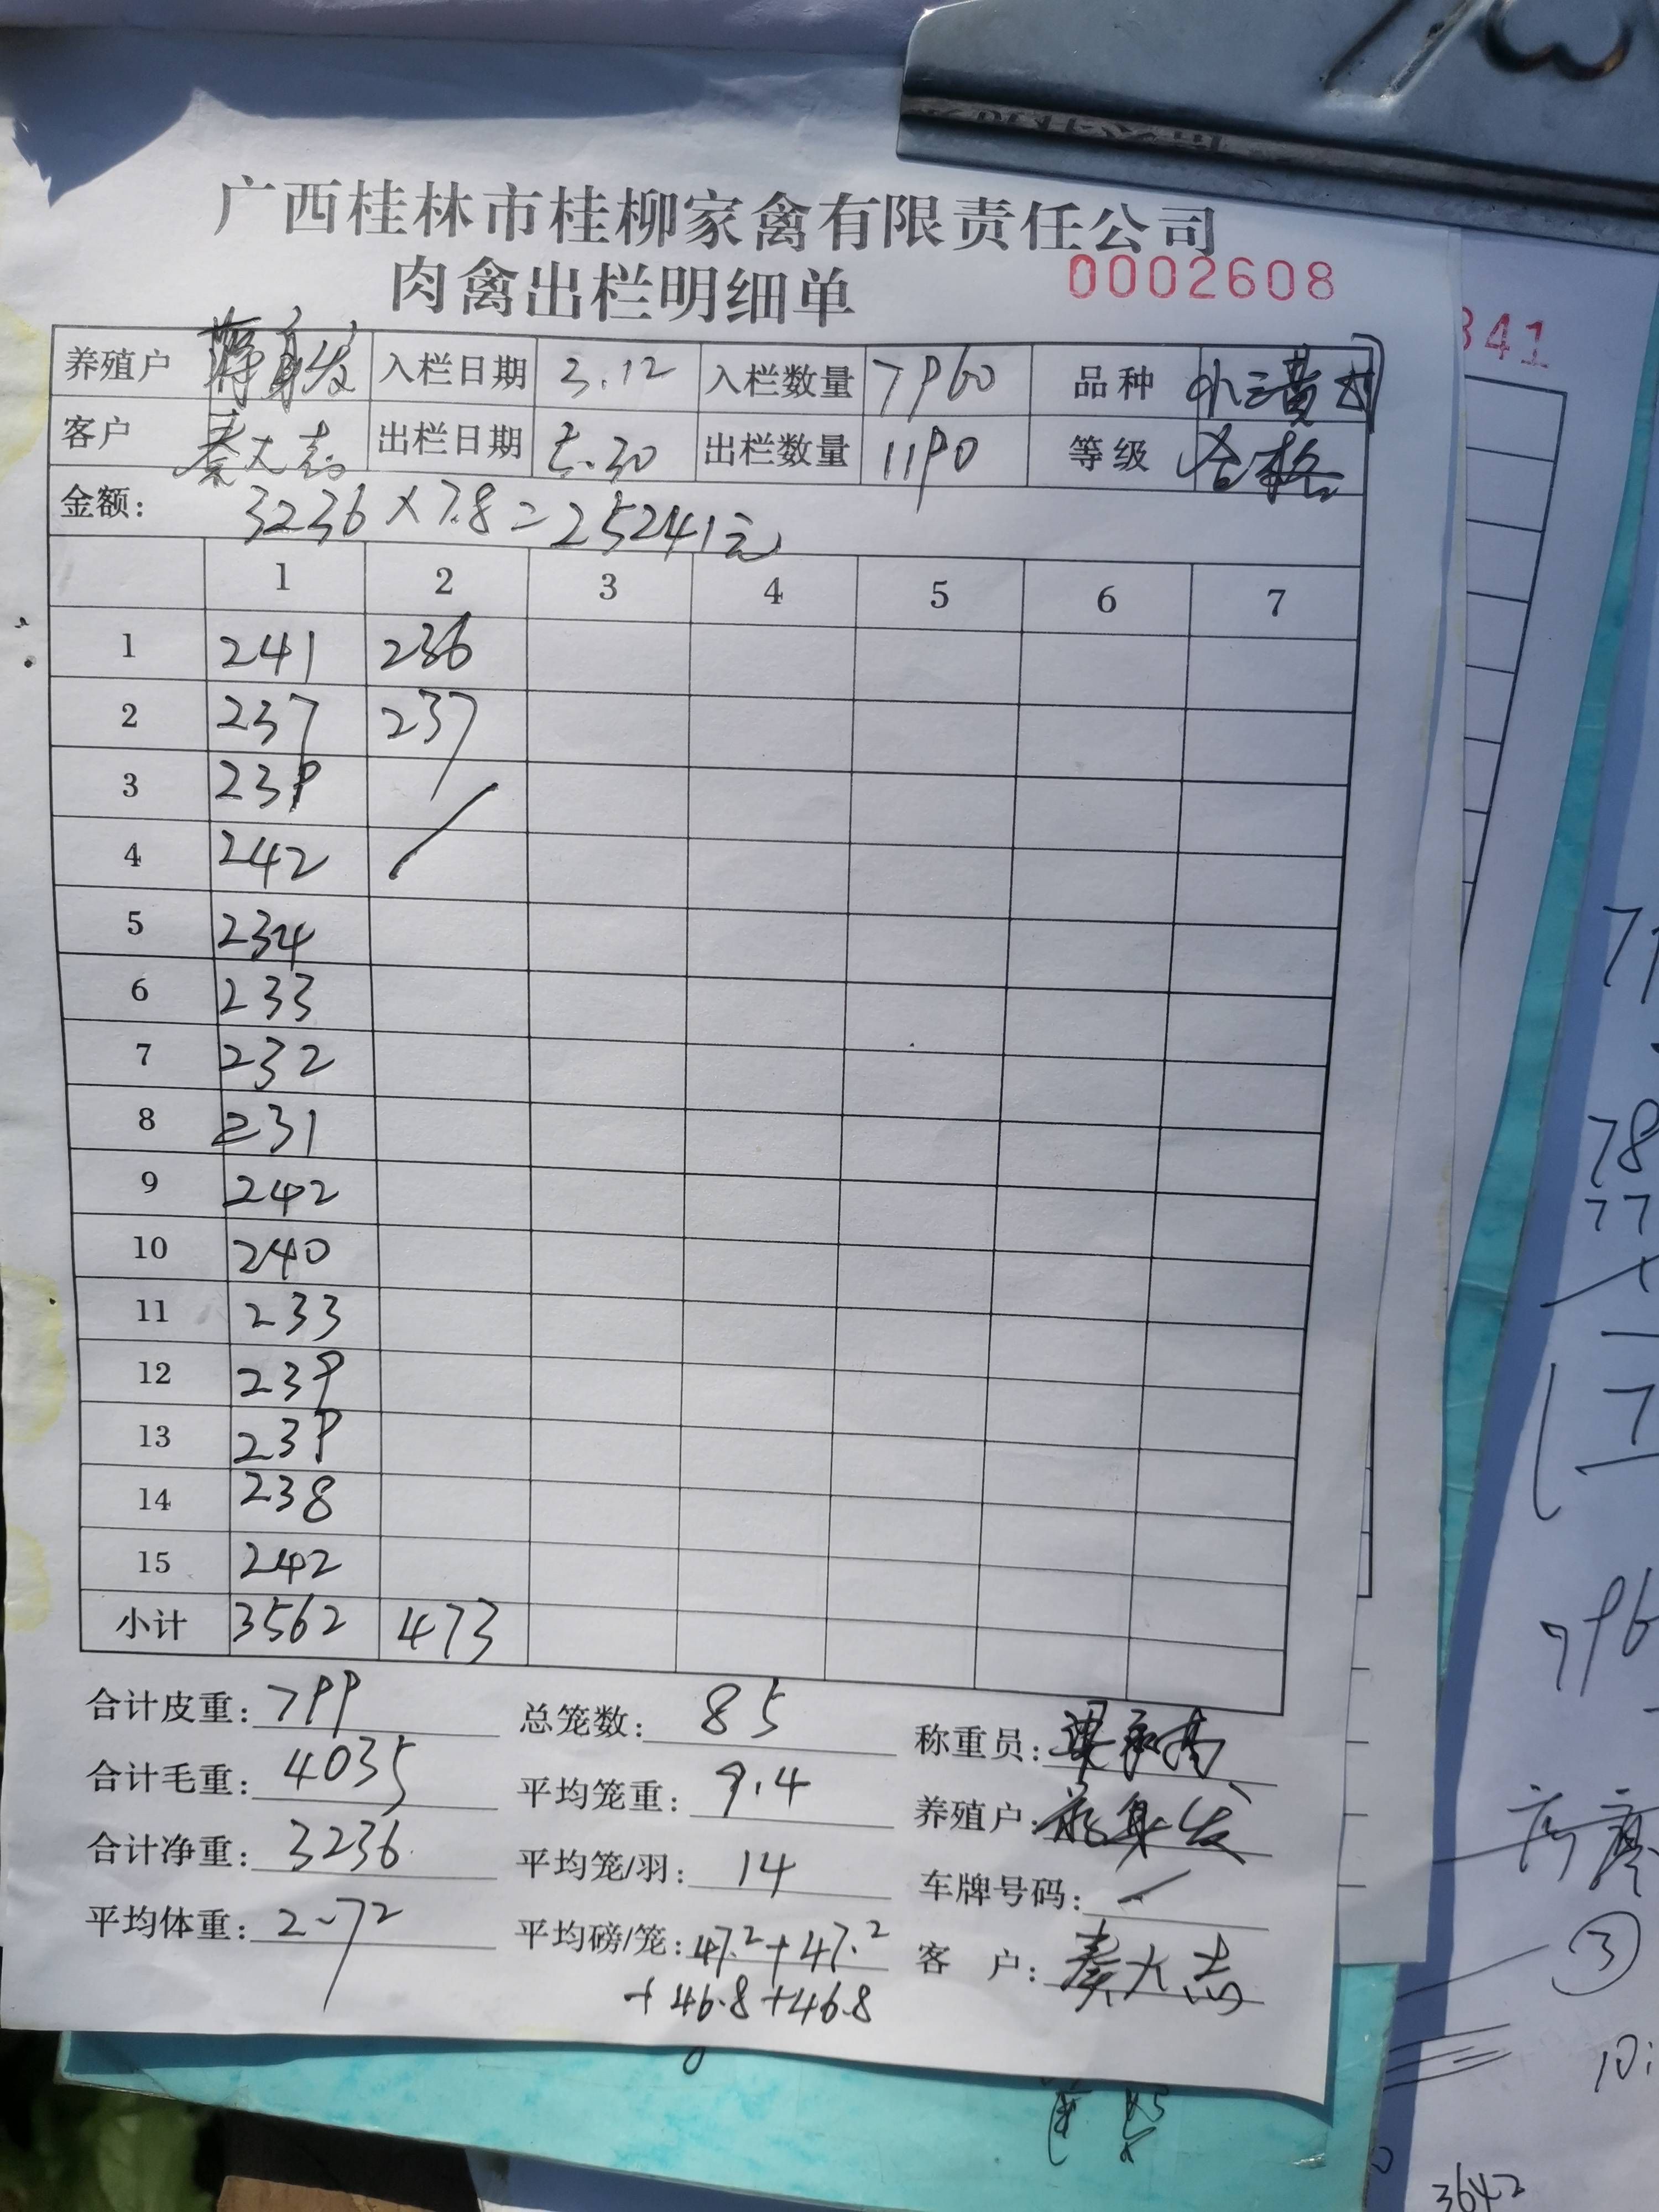 广西桂林市桂柳家禽有限责任公司
肉禽出栏明细单 0002608
341
养殖户 蒋身发 入栏日期 3.12 入栏数量 7960 品种 小三黄
客户 秦大志 出栏日期 5.30 出栏数量 1190 等级 合格
金额: 3236×7.8=25241元
1 2 3 4 5 6 7
1 241 236
2 237 237
3 239
4 242
5 234
6 233
7 232
8 231
9 242
10 240
11 233
12 239
13 239
14 238
15 242
小计 3562 473
合计皮重: 799 总笼数: 85 称重员:
合计毛重: 4035 平均笼重: 9.4 养殖户: 蒋身发
合计净重: 3236 平均笼/羽: 14 车牌号码:
平均体重: 2.72 平均磅/笼: 47.2+47.2 客 户: 秦大志
+46.8+46.8
78
77
796
③
10:
3642